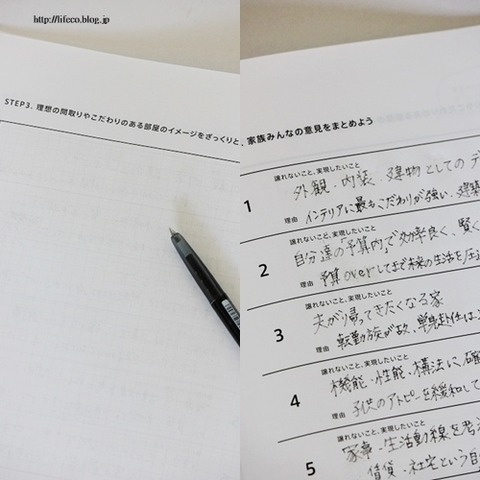 http://lifeco.blog.jp
STEP3. 理想の間取りやこだわりのある部屋のイメージをざっくりと、
家族みんなの意見をまとめよう
譲れないこと、実現したいこと
1 外観・内装・建物としてのデ
理由 インテリアに最もこだわりが強い、建築
譲れないこと、実現したいこと
2 自分達の「予算内」で効率良く、賢く
理由 予算overしてまで未来の生活を圧迫
譲れないこと、実現したいこと
3 夫が帰ってきたくなる家
理由 転勤族が故、単身赴任は
譲れないこと、実現したいこと
4 機能・性能・構法に、確
理由 子供のアトピーを緩和して
譲れないこと、実現したいこと
5 家事・生活動線を考
賃貸・社宅という自